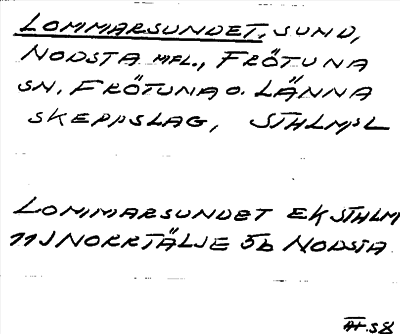 LOMMARSUNDET, SUND,
NODSTA MFL., FRÖTUNA
SN. FRÖTUNA O. LÄNNA
SKEPPSLAG, STHLMSL
LOMMARSUNDET EK STHLM
11J NORRTÄLJE 5b NODSTA